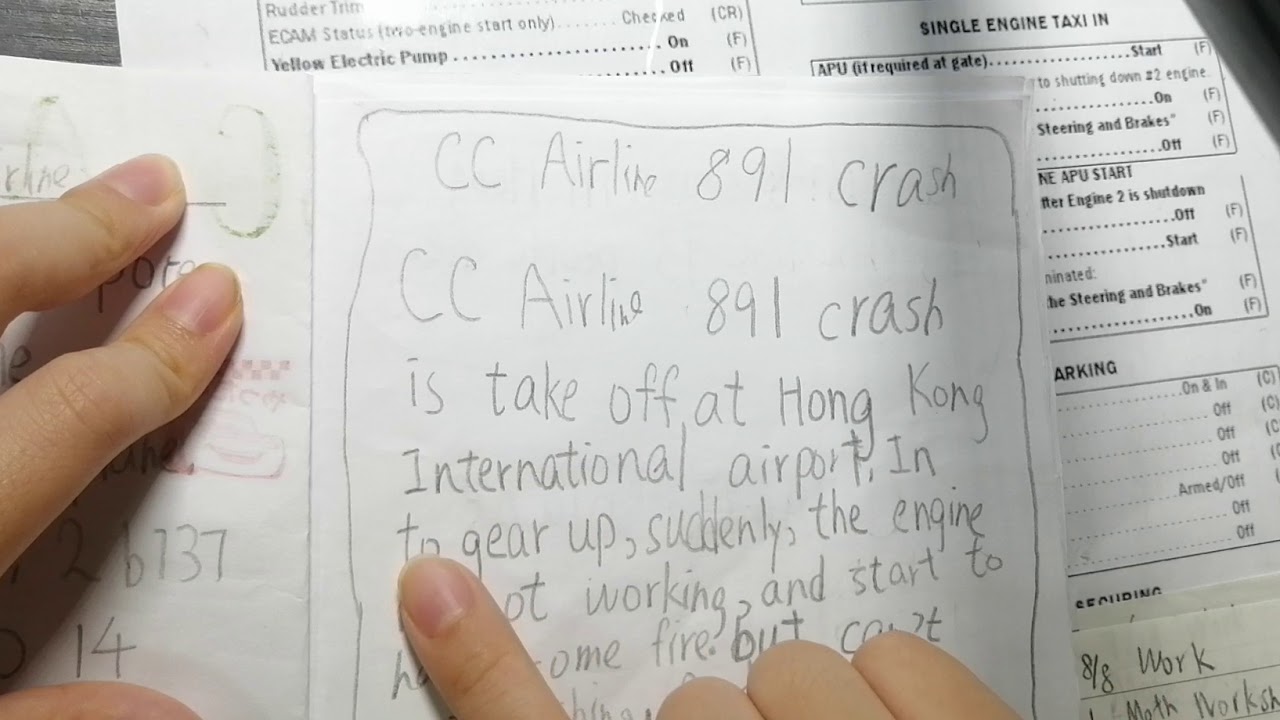 Rudder Trim
ECAM Status (two-engine start only)....... Checked (CR)
Yellow Electric Pump .................... On (F)
Off (F)
SINGLE ENGINE TAXI IN
APU (if required at gate)....................Start (F)
to shutting down #2 engine.
On (F)
Steering and Brakes"
Off (F)
APU START
Engine 2 is shutdown
Off (F)
Start (F)
the Steering and Brakes" (F)
On (F)
On & In (C)
Off (C)
Off
Off
Armed/Off
Off
Off
SECURING
CC Airline 891 crash
CC Airline 891 crash
is take off, at Hong Kong
International airport. In
to gear up, suddenly, the engine
working, and start to
fire. but can't
2 b737
14
8/8 Work
Math